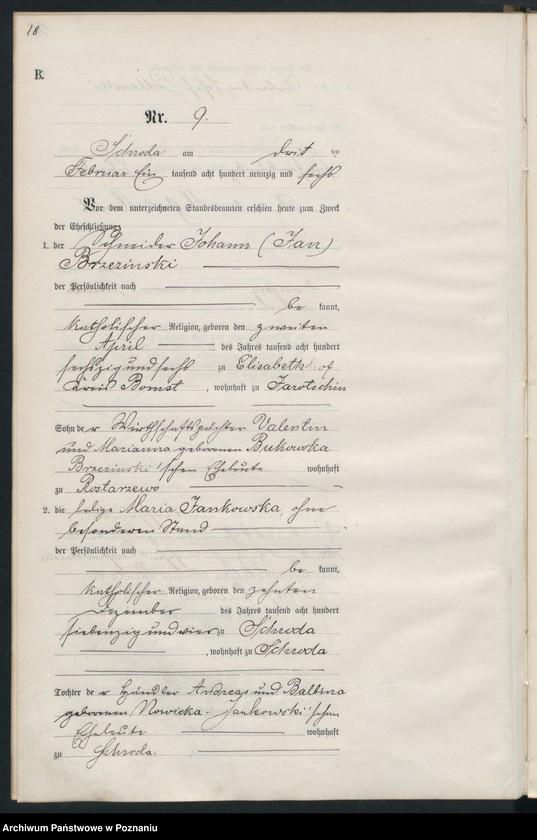 18
B.
Nr. 9.
Schroda am dritten
Februar Ein tausend acht hundert neunzig und sechs
Vor dem unterzeichneten Standesbeamten erschien heute zum Zweck
der Eheschließung:
1. der Schneider Johann (Jan)
Brzezinski
der Persönlichkeit nach
be kannt,
katholischer Religion, geboren den zweiten
April des Jahres tausend acht hundert
sechszig und sechs zu Elisabethhof
Kreis Bomst, wohnhaft zu Jarotschin
Sohn der Wirthschaftspächter Valentin
und Marianna geborenen Bukowska
Brzezinski'schen Eheleute wohnhaft
zu Rostarzewo
2. die ledige Maria Jankowska, ohne
besonderen Stand
der Persönlichkeit nach
be kannt,
katholischer Religion, geboren den zehnten
Dezember des Jahres tausend acht hundert
siebenzig und vier zu Schroda
, wohnhaft zu Schroda
Tochter der Händler Andreas und Balbina
geborenen Nowicka - Jankowski'schen
Eheleute wohnhaft
zu Schroda.
Archiwum Państwowe w Poznaniu